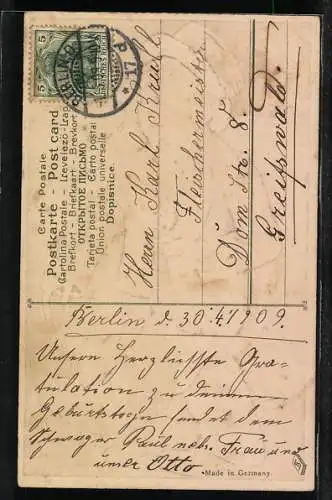 Carte Postale
Postkarte - Post Card
Cartolina Postale - Levelező-Lap
Brefkort - Briefkaart - Brevkort
ОТКРЫТОЕ ПИСЬМО
Tarjeta postal - Carto postal
Union postale universelle
Dopisnice.
5
5
BERLIN
P
* 17
Herrn Karl
Fleischermeister
Dom Str 8.
Greifswald.
Berlin d. 30.4.1909.
Unsere Herzlichste Gra-
tulation zu deinem
Geburtstage sendet dein
Schwager Paul nebst Frau und
unser Otto
Made in Germany.